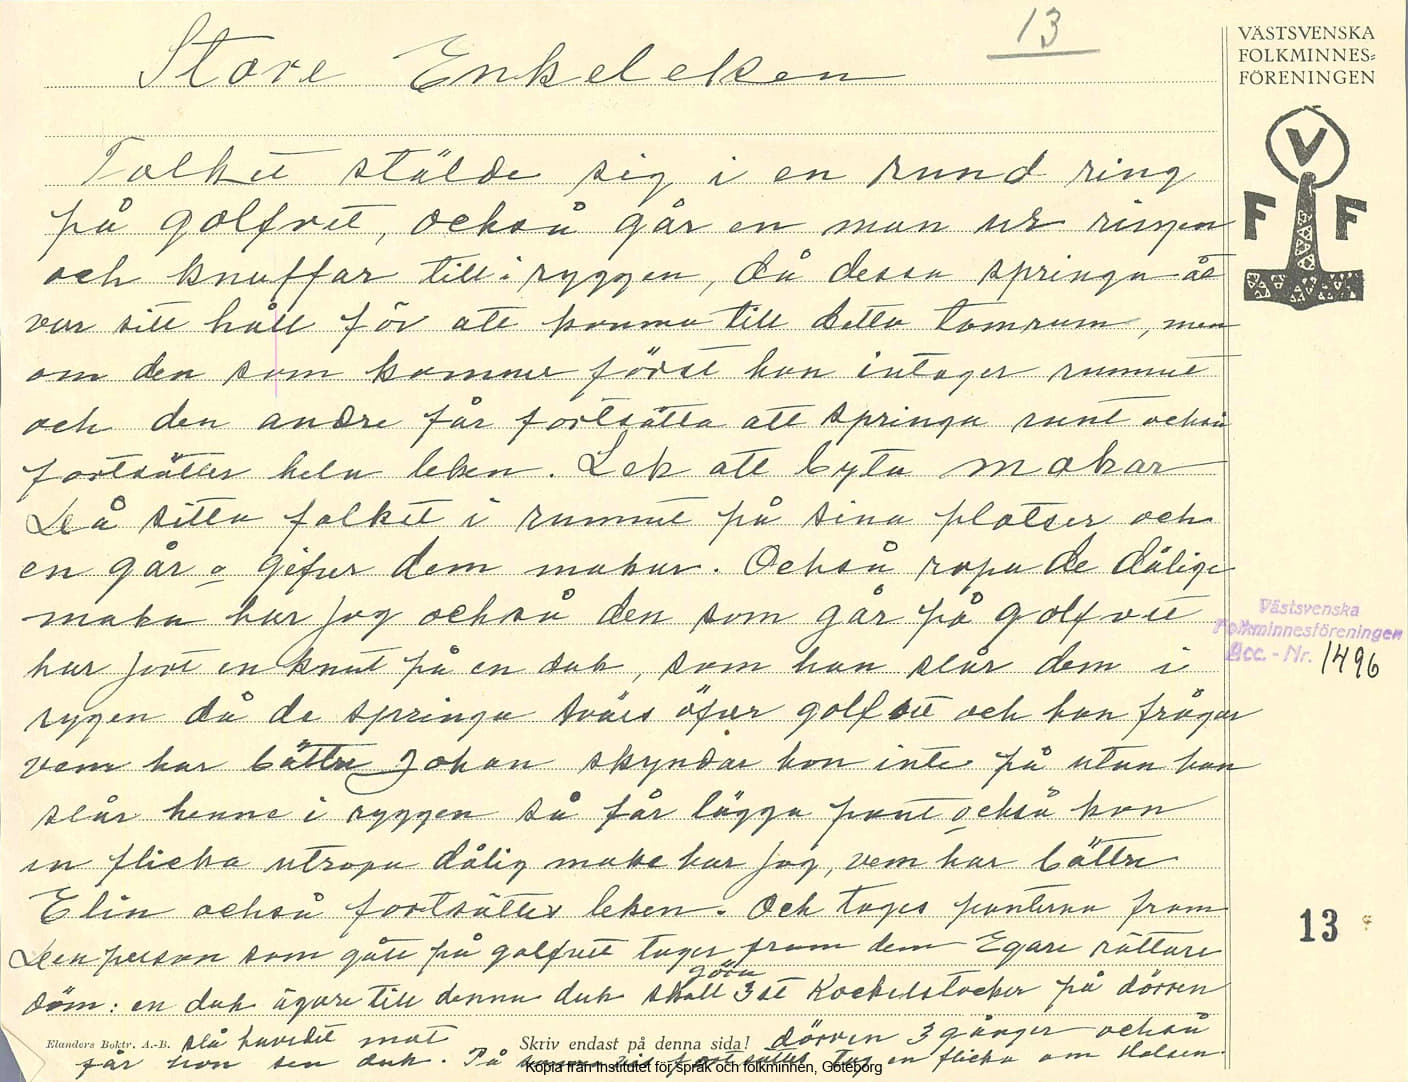 13
VÄSTSVENSKA
FOLKMINNES=
FÖRENINGEN
V
F F
Store Enkeleken
Folket stälde sig i en rund ring
på golfvet, också går en man ur ringen
och knuffar till i ryggen, då dessa springa åt
var sitt håll för att komma till detta tomrum, men
om den som kommer först han intager rummet
och den andre får fortsätta att springa runt också
fortsätter hela leken. Lek att byta makar
Då sitta folket i rummet på sina platser och
en går o gifver dem makar. Också ropa de dålig
maka har jag också den som går på golfvet
har jort en knut på en duk, som han slår dem i
rygen då de springa tvärs öfver golfvet och han frågar
vem har bättre Johan skyndar hon inte på utan han
slår henne i ryggen så får lägga pant också kan
en flicka utropa dålig make har jag, vem har bättre
Elin också fortsätter leken. Och tages panterna fram
Den person som gått på golfvet tager fram dem Egare rättare
döm: en duk ägare till denna duk skall göra 3 st Kockelstocker på dörren
slå huvudet mot dörren 3 gånger också
får hon sen duk. På tag en flicka om Halsen.
Elanders Boktr. A.-B.
Skriv endast på denna sida!
Västsvenska
Folkminnesföreningen
Acc. - Nr. 1496
13
Kopia från Institutet för språk och folkminnen, Göteborg